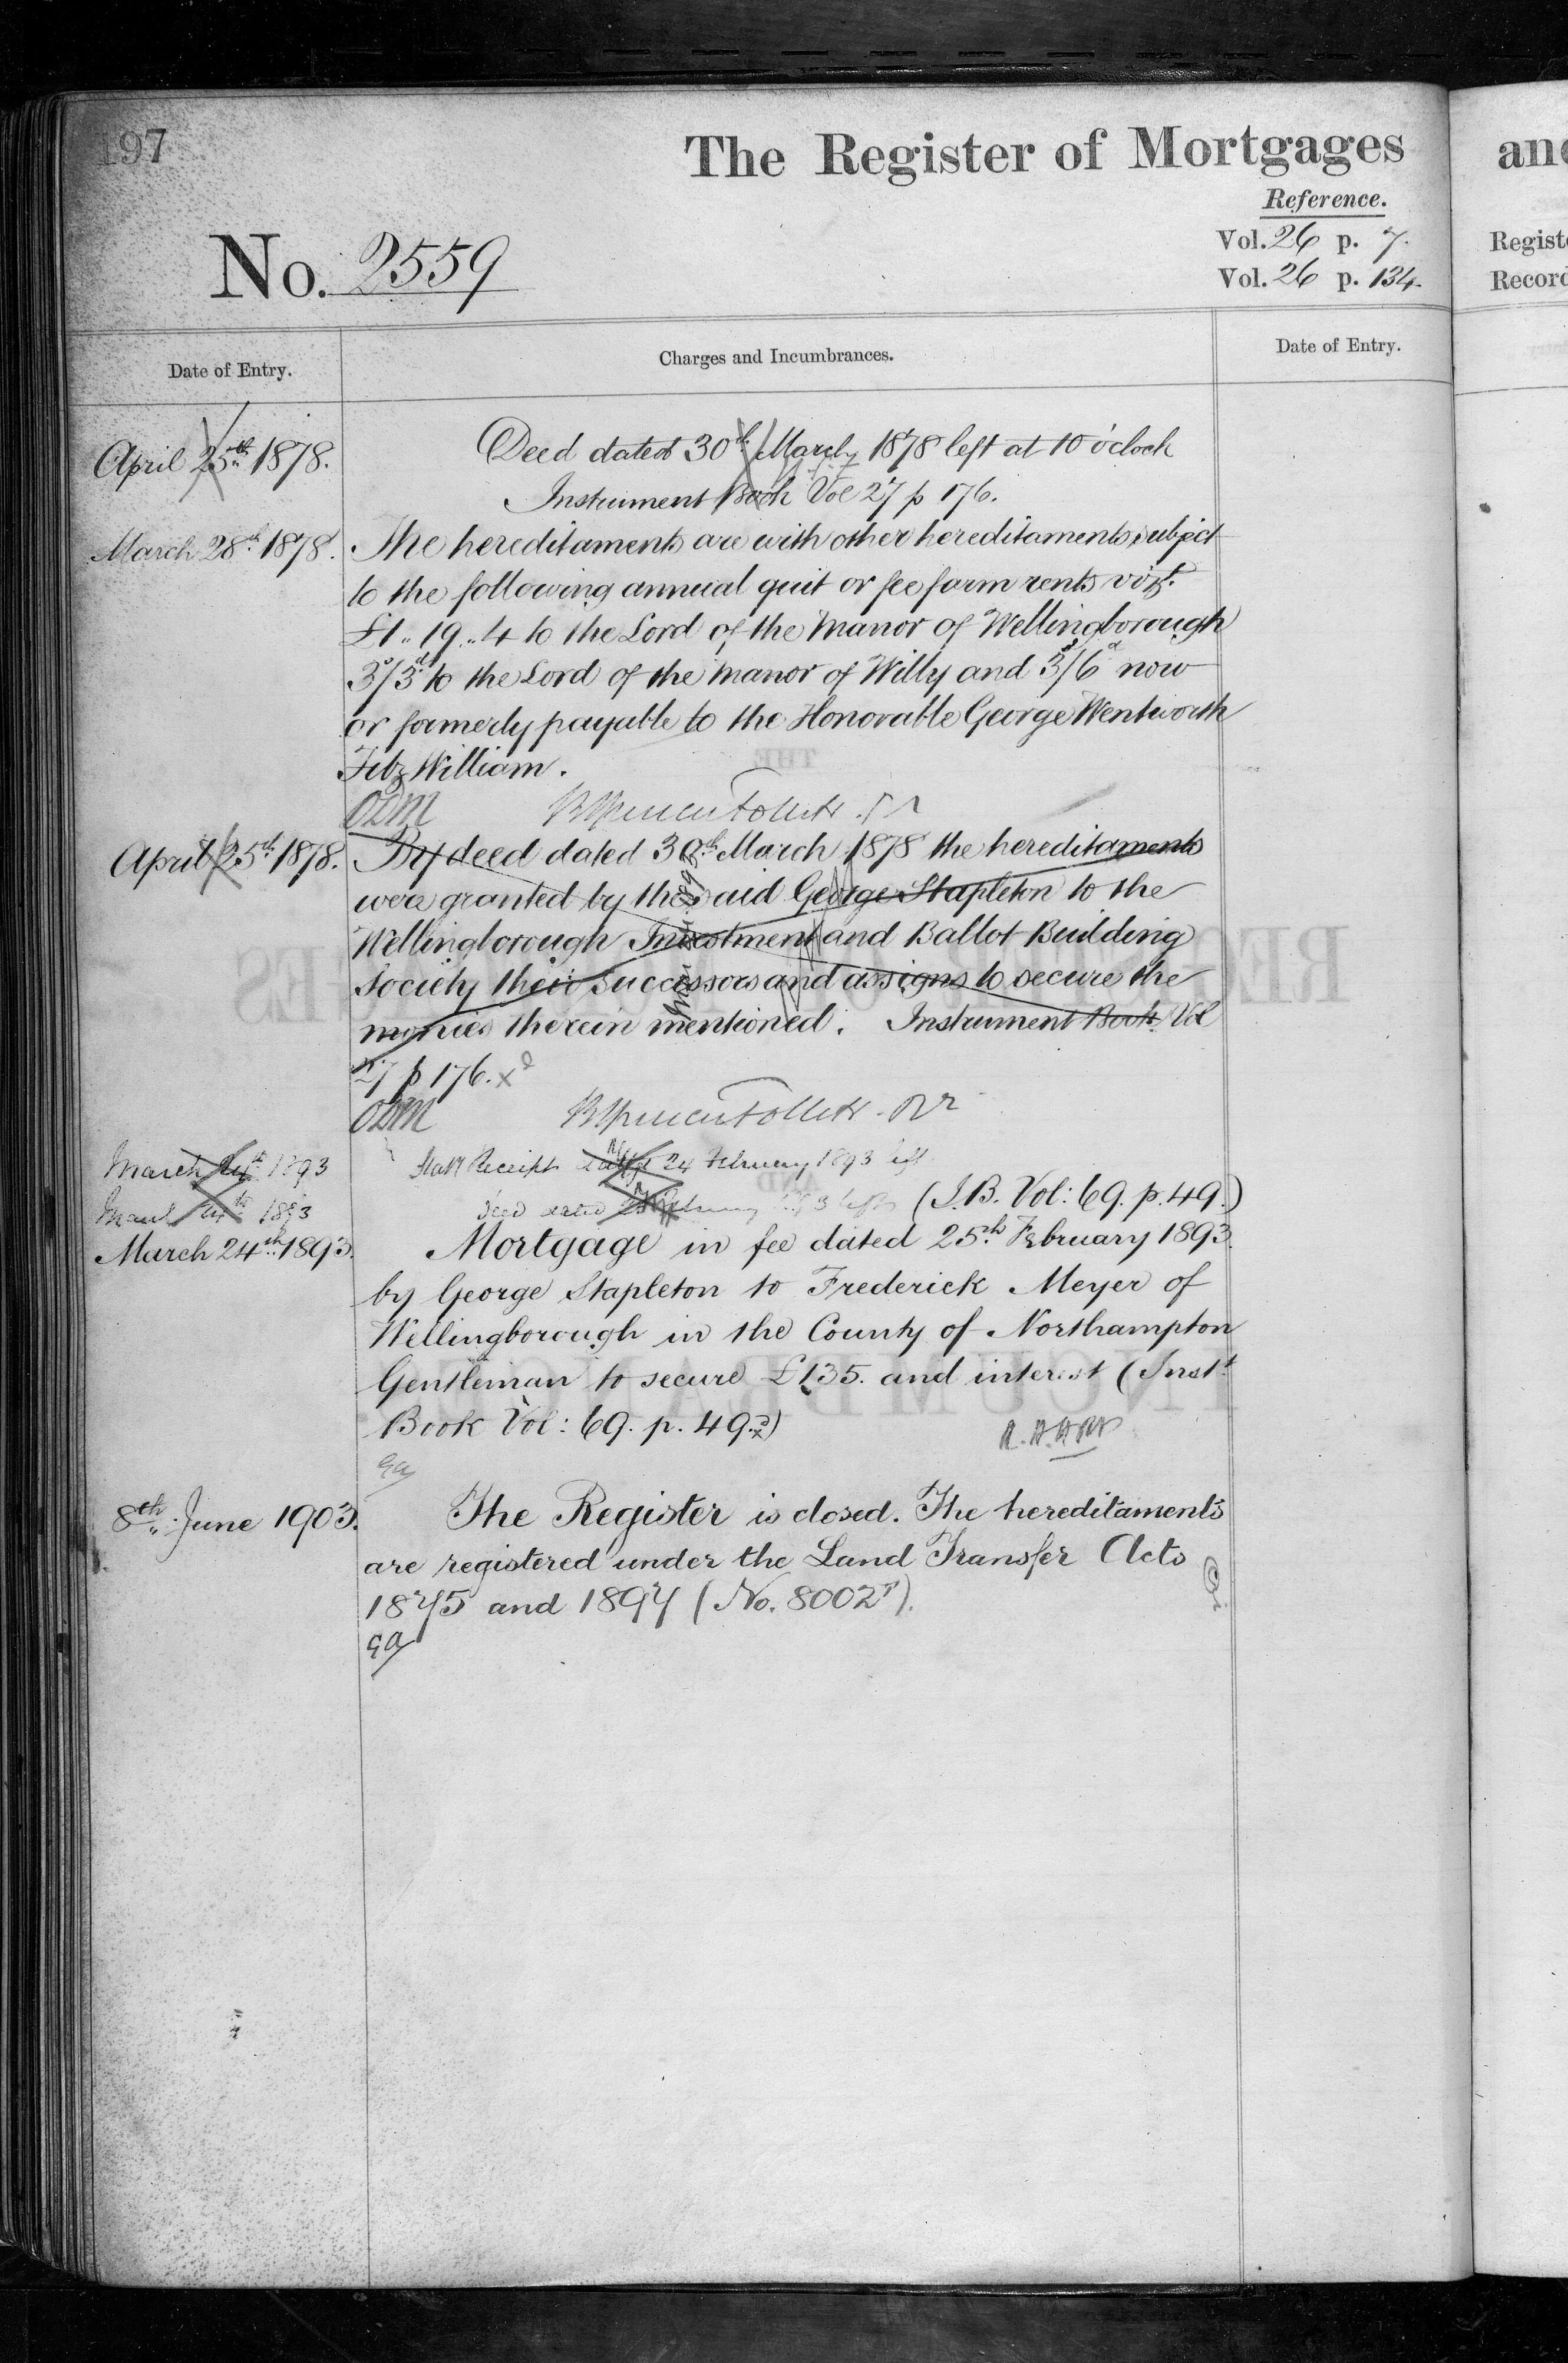 197
The Register of Mortgages
Reference.
Vol. 26 p. 7.
No. 2559
Vol. 26 p. 134.
Date of Entry.
Charges and Incumbrances.
Date of Entry.
April 25th 1878.
Deed dated 30th March 1878 left at 10 o'clock
Instrument Book Vol 27 p 176.
March 28th 1878.
The hereditaments are with other hereditaments subject
to the following annual quit or fee farm rents vizt.
£1..19..4 to the Lord of the Manor of Wellingborough
3s/3d to the Lord of the Manor of Willy and 3s/6d now
or formerly payable to the Honorable George Wentworth
Fitz William.
ODM
April 25th 1878.
By deed dated 30th March 1878 the hereditaments
were granted by the said George Stapleton to the
Wellingborough Investment and Ballot Building
Society their successors and assigns to secure the
monies therein mentioned. Instrument Book Vol
27 p 176. x
ODM
March 24th 1893
Receipt dated 24 February 1893 left
March 24th 1893
Deed dated 25 February 1893 left (I.B. Vol: 69. p. 49.)
March 24th 1893.
Mortgage in fee dated 25th February 1893.
by George Stapleton to Frederick Meyer of
Wellingborough in the County of Northampton
Gentleman to secure £135. and interest (Instt
Book Vol: 69. p. 49.x)
8th June 1903.
The Register is closed. The hereditaments
are registered under the Land Transfer Acts
1875 and 1897 (No. 8002).
and
Regist
Record